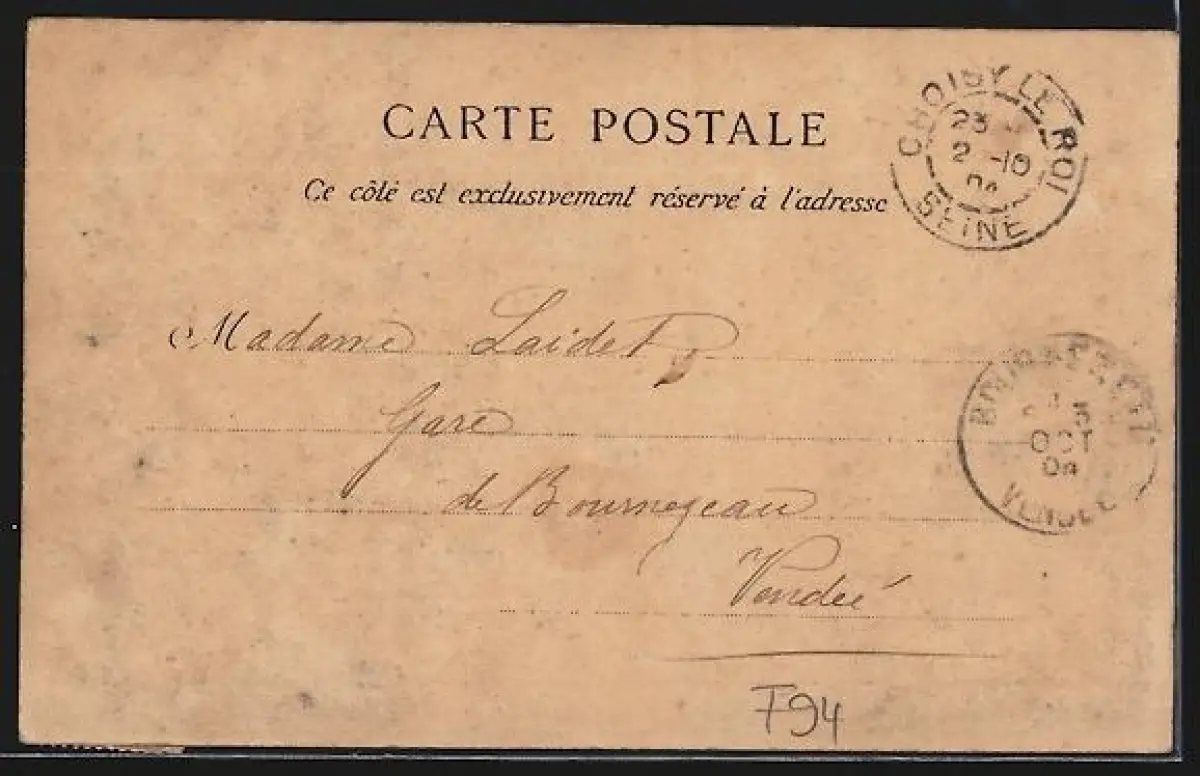 CARTE POSTALE
Ce côté est exclusivement réservé à l'adresse
CHOISY LE ROI
23
2 -10
SEINE
Madame Laidet
Gare
de Bournezeau
Vendée
OCT
VENDEE
F94